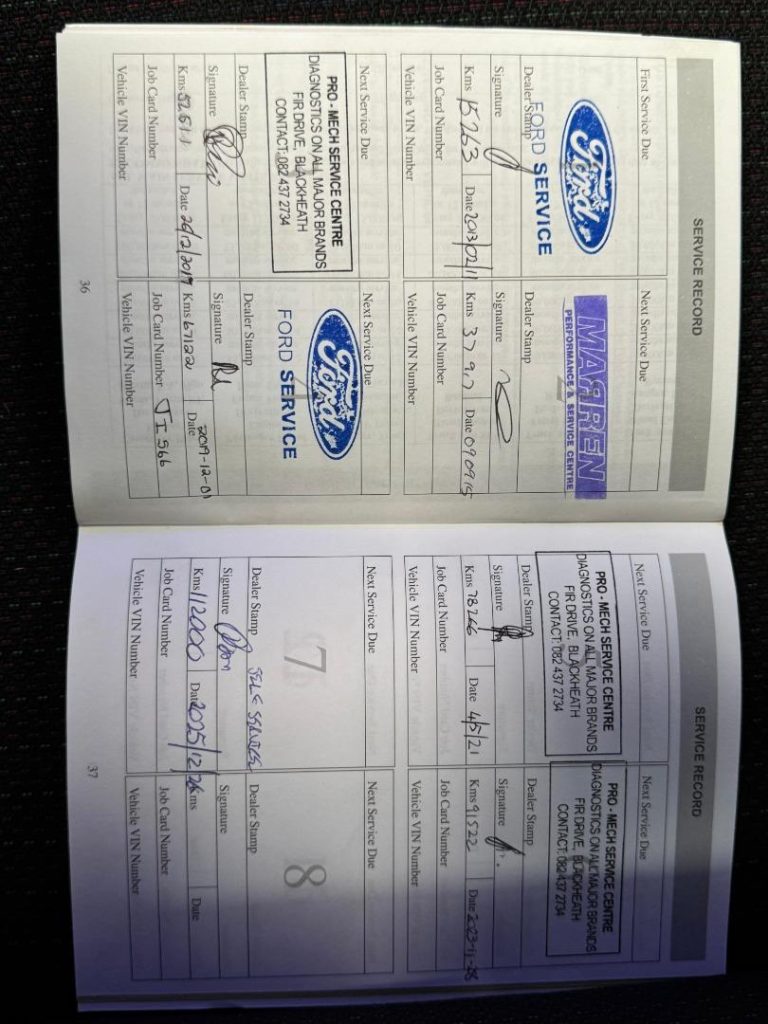 SERVICE RECORD
First Service Due
Ford
FORD SERVICE
Dealer Stamp
Signature
Kms 15263 Date 2013/02/11
Job Card Number
Vehicle VIN Number
Next Service Due
2
MARREN
PERFORMANCE & SERVICE CENTRE
Dealer Stamp
Signature
Kms Date 090915
Job Card Number
Vehicle VIN Number
Next Service Due
PRO - MECH SERVICE CENTRE
DIAGNOSTICS ON ALL MAJOR BRANDS
FIR DRIVE, BLACKHEATH
CONTACT: 082 437 2734
Dealer Stamp
Signature
Kms Date
Job Card Number
Vehicle VIN Number
Next Service Due
Ford
4
FORD SERVICE
Dealer Stamp
Signature
Kms 67122 Date
Job Card Number JI 566
Vehicle VIN Number
36
SERVICE RECORD
Next Service Due
PRO - MECH SERVICE CENTRE
DIAGNOSTICS ON ALL MAJOR BRANDS
FIR DRIVE, BLACKHEATH
CONTACT: 082 437 2734
Dealer Stamp
Signature
Kms 78266 Date 4/5/21
Job Card Number
Vehicle VIN Number
Next Service Due
PRO - MECH SERVICE CENTRE
DIAGNOSTICS ON ALL MAJOR BRANDS
FIR DRIVE, BLACKHEATH
CONTACT: 082 437 2734
Dealer Stamp
Signature
Kms 91522 Date 2023-11-28
Job Card Number
Vehicle VIN Number
Next Service Due
7
Dealer Stamp SELF SERVICE
Signature
Kms 112000 Date 2025/12/26
Job Card Number
Vehicle VIN Number
Next Service Due
8
Dealer Stamp
Signature
Kms Date
Job Card Number
Vehicle VIN Number
37